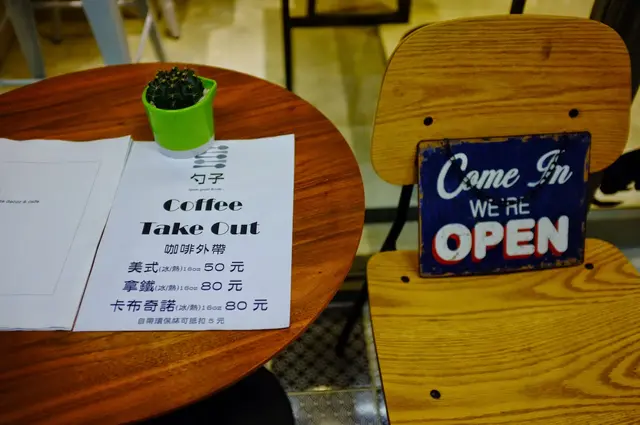 勺子
Coffee
Take Out
咖啡外帶
美式(冰/熱)16oz 50 元
拿鐵(冰/熱)16oz 80 元
卡布奇諾(冰/熱)16oz 80 元
自帶環保杯可抵扣 5 元
Come In
WE'RE
OPEN